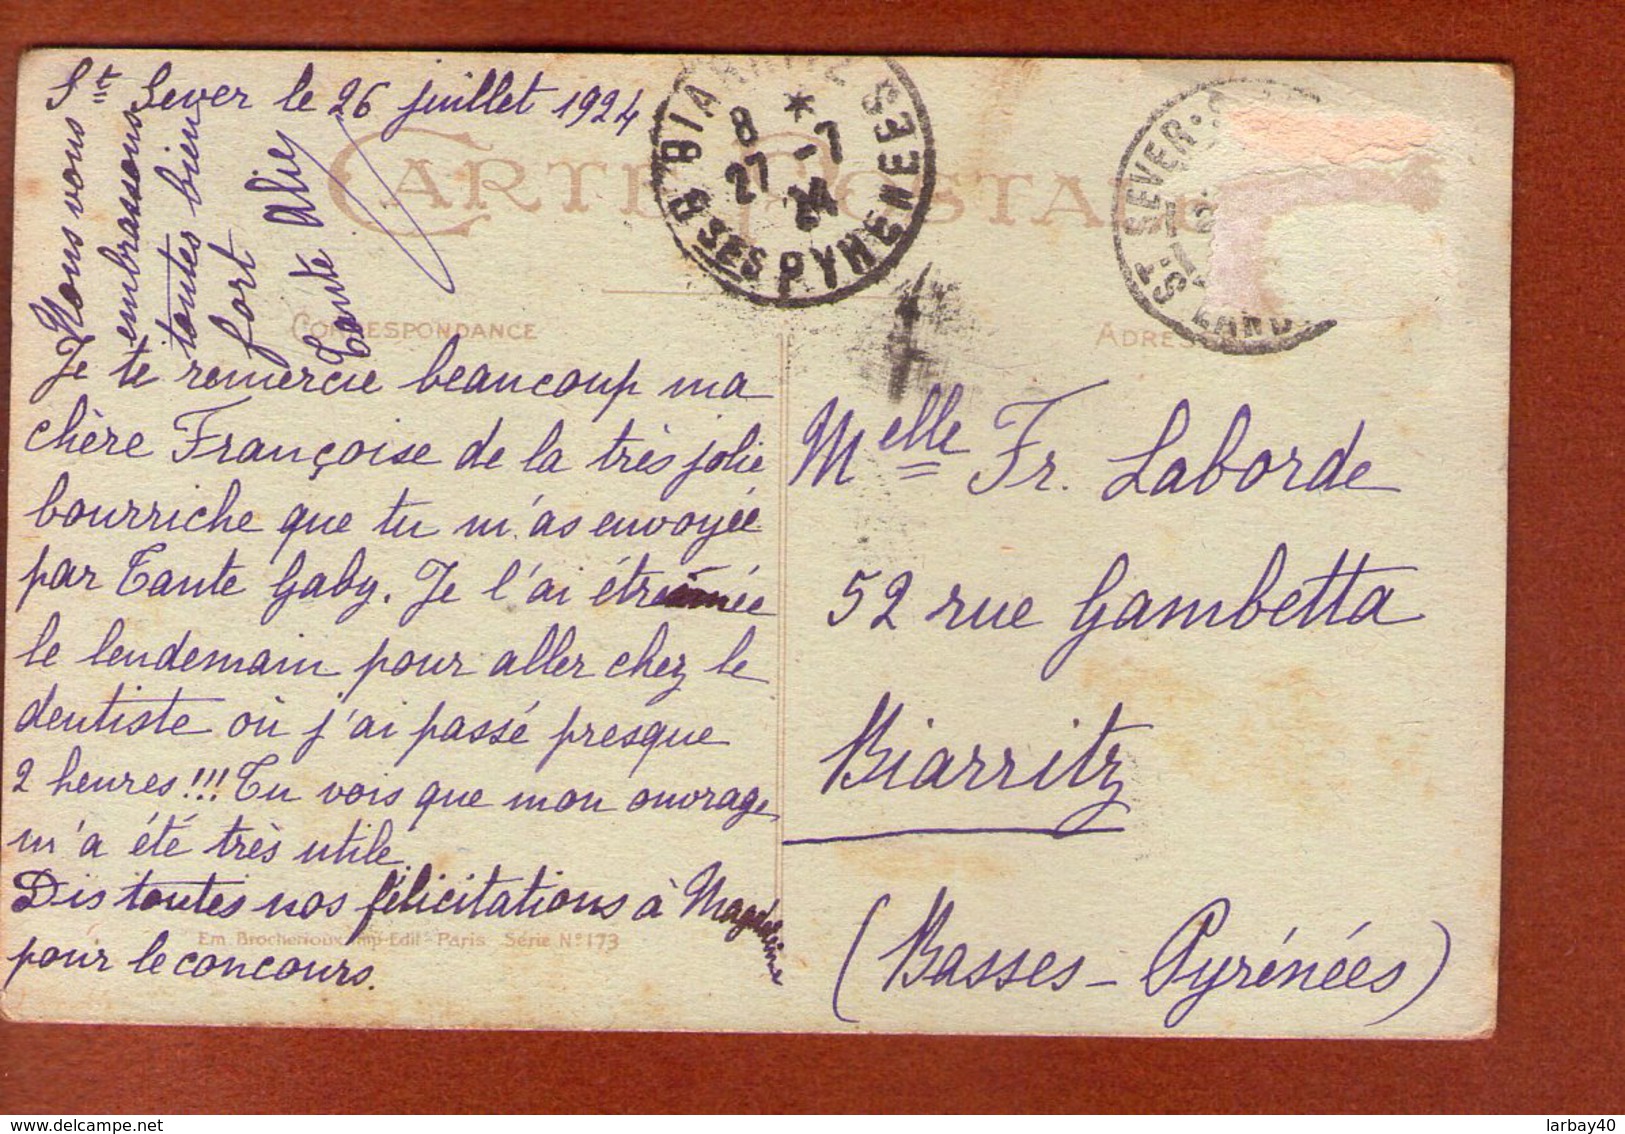 St Sever le 26 juillet 1924
CARTE POSTALE
CORRESPONDANCE
ADRES
Je te remercie beaucoup ma
chère Françoise de la très jolie
bourriche que tu m'as envoyée
par Tante Gaby. Je l'ai étrennée
le lendemain pour aller chez le
dentiste où j'ai passé presque
2 heures!!! Tu vois que mon ouvrage
m'a été très utile.
Dis toutes nos félicitations à Magdeleine
pour le concours.
Nous vous
embrassons
toutes bien
fort
Tante Alie
Melle Fr. Laborde
52 rue Gambetta
Biarritz
(Basses-Pyrénées)
BIARRITZ
8 * -7
27 24
BSES PYRENEES
ST SEVER
LAND
Em. Brocherioux Imp-Edit-Paris Série No 173
delcampe.net
larbay40